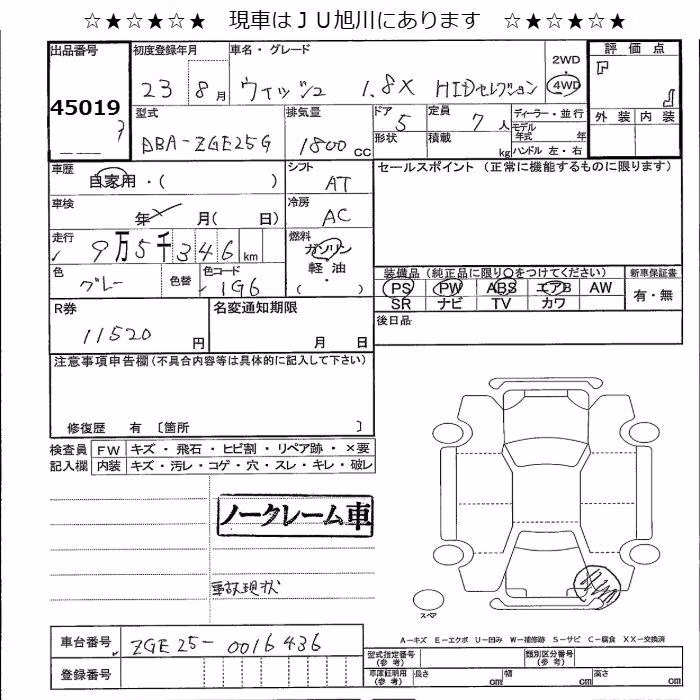 ☆★☆★☆★ 現車はＪＵ旭川にあります ☆★☆★☆★
出品番号 初度登録年月 車名・グレード 評価点
45019 23 8月 ウィッシュ 1.8X HIDセレクション 2WD 4WD
外装 内装
型式 排気量 ドア 定員 ディーラー・並行
DBA-ZGE25G 1800cc 5 7人 モデル年式 年
形状 積載 kg ハンドル 左・右
車歴 シフト セールスポイント（正常に機能するものに限ります）
自家用・( ) AT
車検 冷房
年 月( 日) AC
走行 燃料
9万5千346km ガソリン
軽油
( ・ )
色 色替 色コード 装備品（純正品に限り○をつけてください） 新車保証書
グレー 1G6 PS PW ABS エアB AW 有・無
SR ナビ TV カワ
R券 名変通知期限 後日品
11520円 月 日
注意事項申告欄(不具合内容等は具体的に記入して下さい)
修復歴 有 〔箇所 〕
検査員 FW キズ・飛石・ヒビ割・リペア跡・×要
記入欄 内装 キズ・汚レ・コゲ・穴・スレ・キレ・破レ
ノークレーム車
事故現状
スペア
A－キズ E－エクボ U－凹み W－補修跡 S－サビ C－腐食 XX－交換済
車台番号 ZGE25-0016436
型式指定番号(参考) 類別区分番号(参考)
登録番号 車庫証明用(参考) 長さ cm 幅 cm 高さ cm